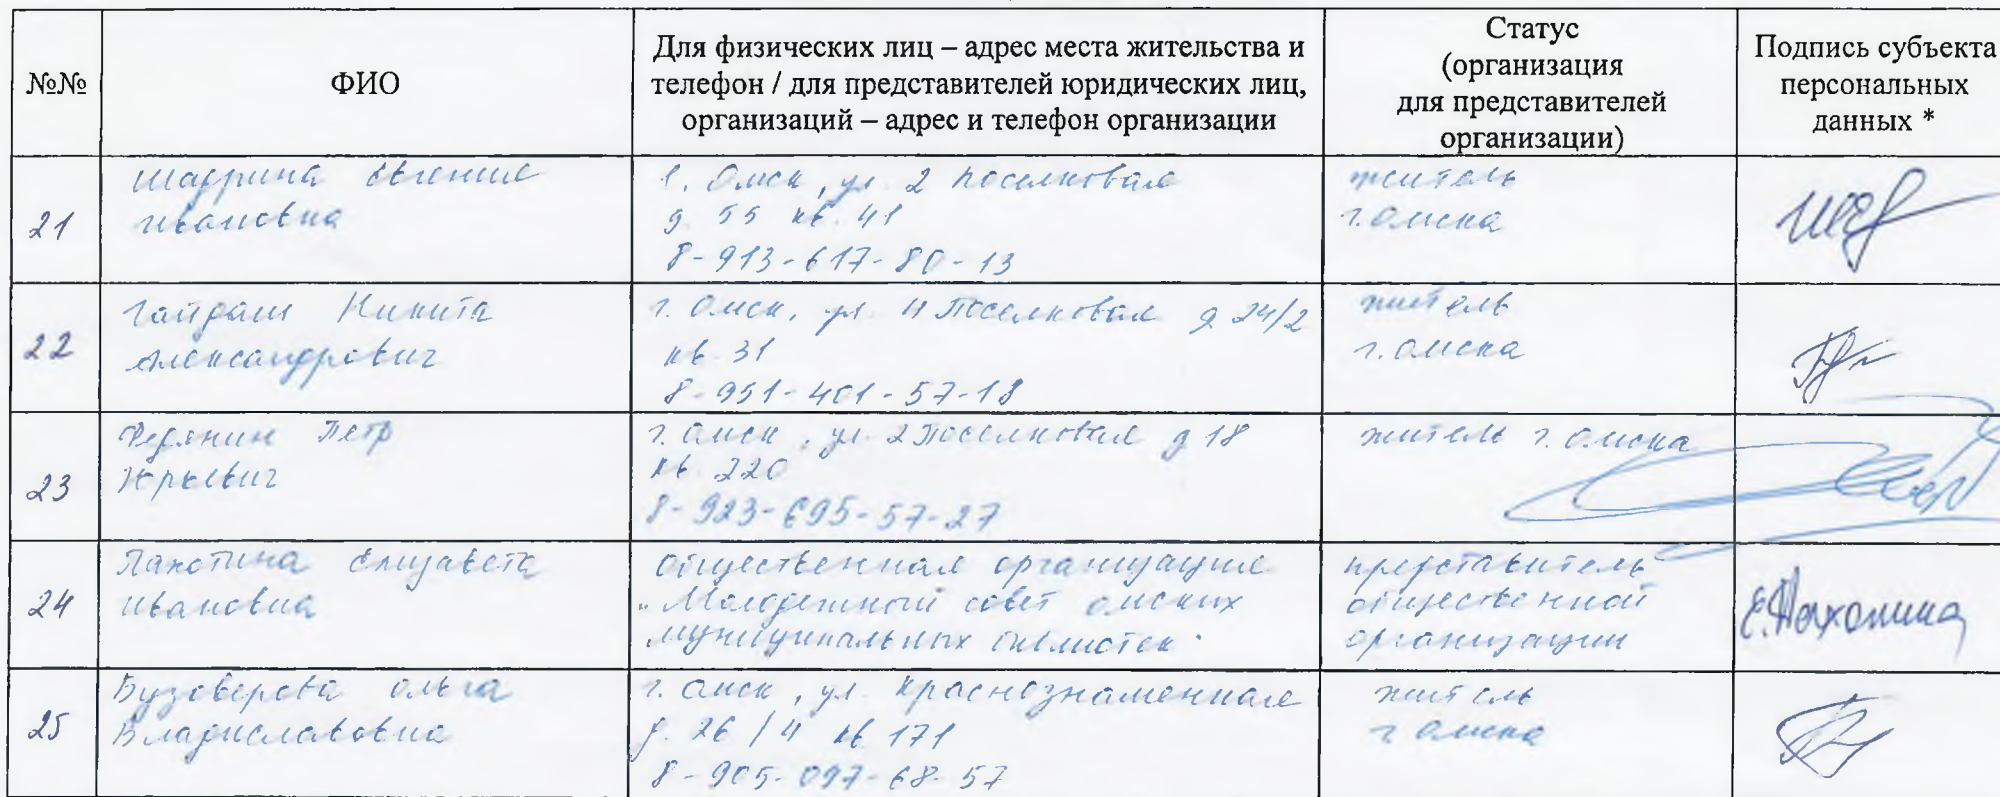 №№
ФИО
Для физических лиц – адрес места жительства и
телефон / для представителей юридических лиц,
организаций – адрес и телефон организации
Статус
(организация
для представителей
организации)
Подпись субъекта
персональных
данных *
21
Шадрина Евгения
Ивановна
г. Омск, ул. 2 Поселковая
д. 55 кв. 41
8-913-617-80-13
житель
г. Омска
22
Гайдаш Никита
Александрович
г. Омск, ул. 4 Поселковая д 24/2
кв. 31
8-951-401-57-18
житель
г. Омска
23
Петр
Юрьевич
г. Омск, ул. 2 Поселковая д 18
кв. 220
8-923-695-57-27
житель г. Омска
24
Лахотина Елизавета
Ивановна
общественная организация
"Молодежный совет омских
муниципальных библиотек"
представитель
общественной
организации
25
Бузоверова Ольга
Владиславовна
г. Омск, ул. Краснознаменная
д. 26/4 кв 171
8-905-097-68-57
житель
г Омска